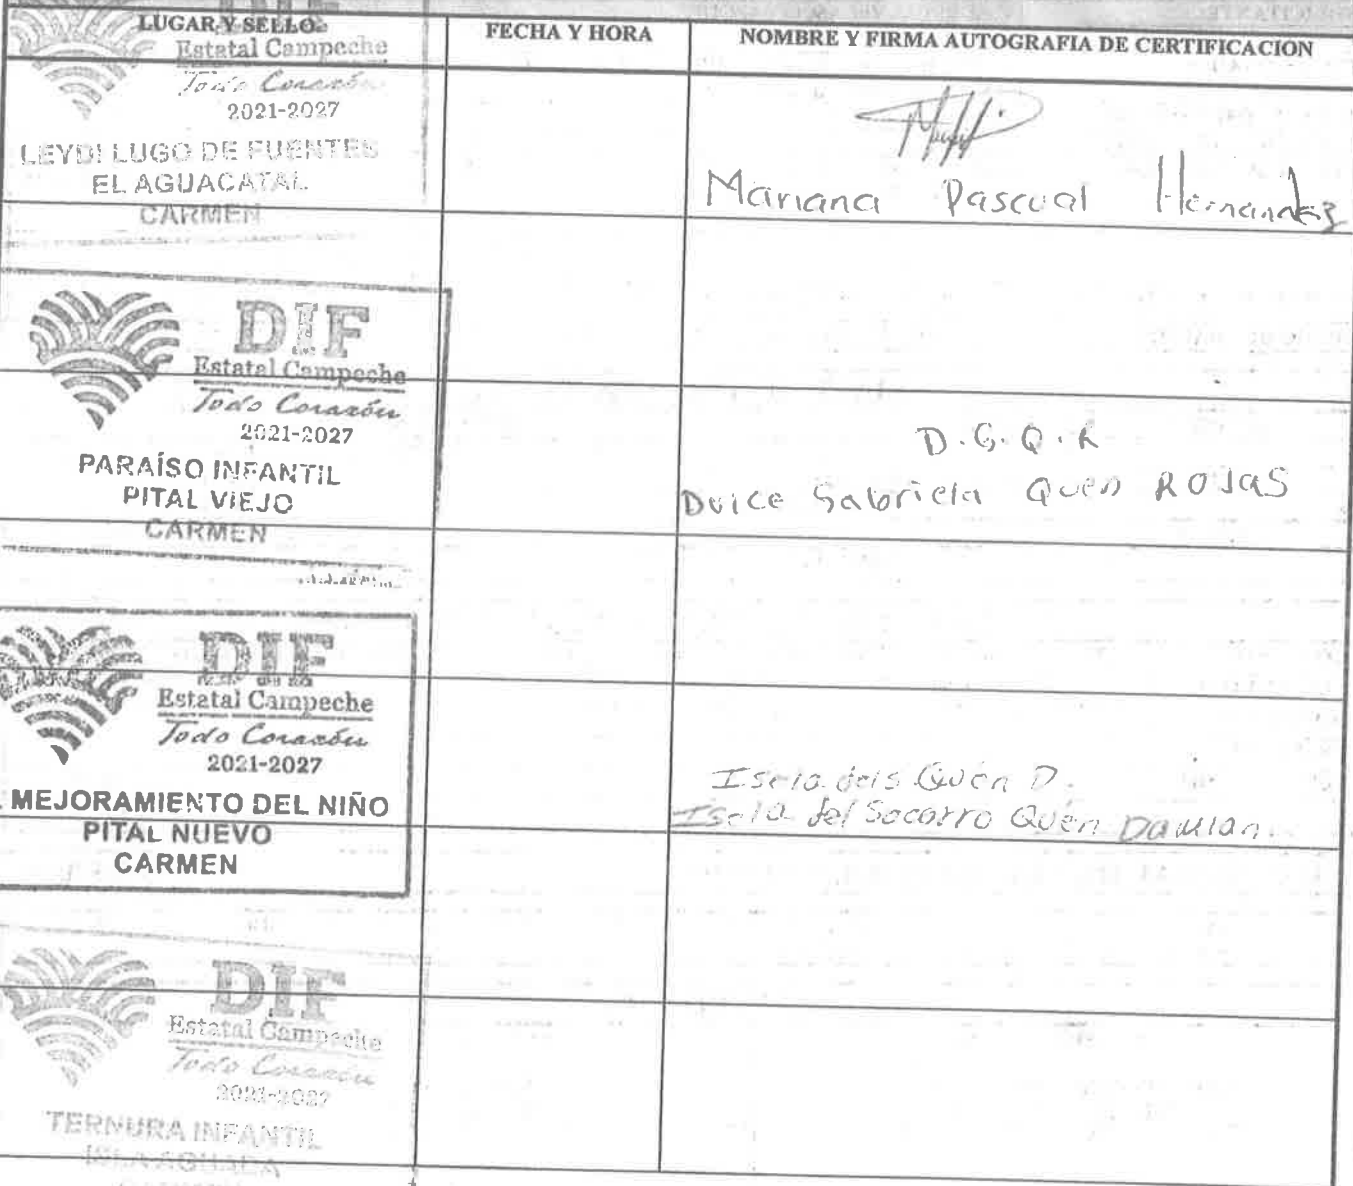 LUGAR Y SELLO
FECHA Y HORA
NOMBRE Y FIRMA AUTOGRAFIA DE CERTIFICACION
Estatal Campeche
Todo Corazón
2021-2027
LEYDI LUGO DE FUENTES
EL AGUACATAL
CARMEN
Mariana Pascual Hernandez
DIF
Estatal Campeche
Todo Corazón
2021-2027
PARAÍSO INFANTIL
PITAL VIEJO
CARMEN
D.G.Q.R
Dulce Gabriela Quen ROJAS
DIF
Estatal Campeche
Todo Corazón
2021-2027
MEJORAMIENTO DEL NIÑO
PITAL NUEVO
CARMEN
Isela del S Quén D.
Isela del Socorro Quén Damian
DIF
Estatal Campeche
Todo Corazón
2021-2027
TERNURA INFANTIL
ISLA AGUADA